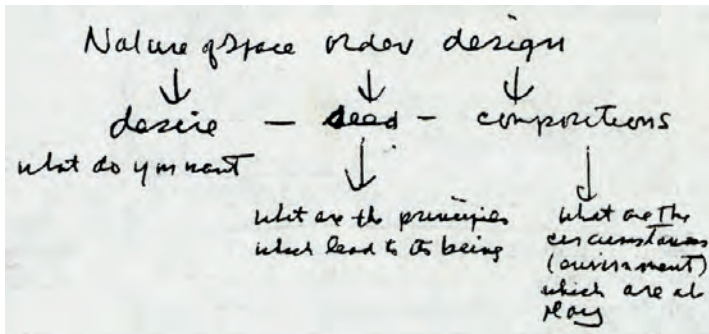 Nature of Space order design
desire — seed — compositions
what do you want
what are the principles
which lead to its being
what are the
circumstances
(environment)
which are at
play